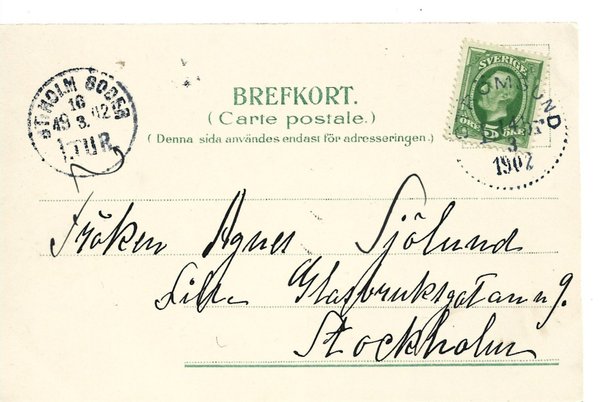 BREFKORT.
(Carte postale.)
(Denna sida användes endast för adresseringen.)
STHOLM
16
19 3. 02
1 TUR
SVERIGE
5
ÖRE
3
1902
Fröken Agnes Sjölund
Lilla Glasbruksgatan 9.
Stockholm